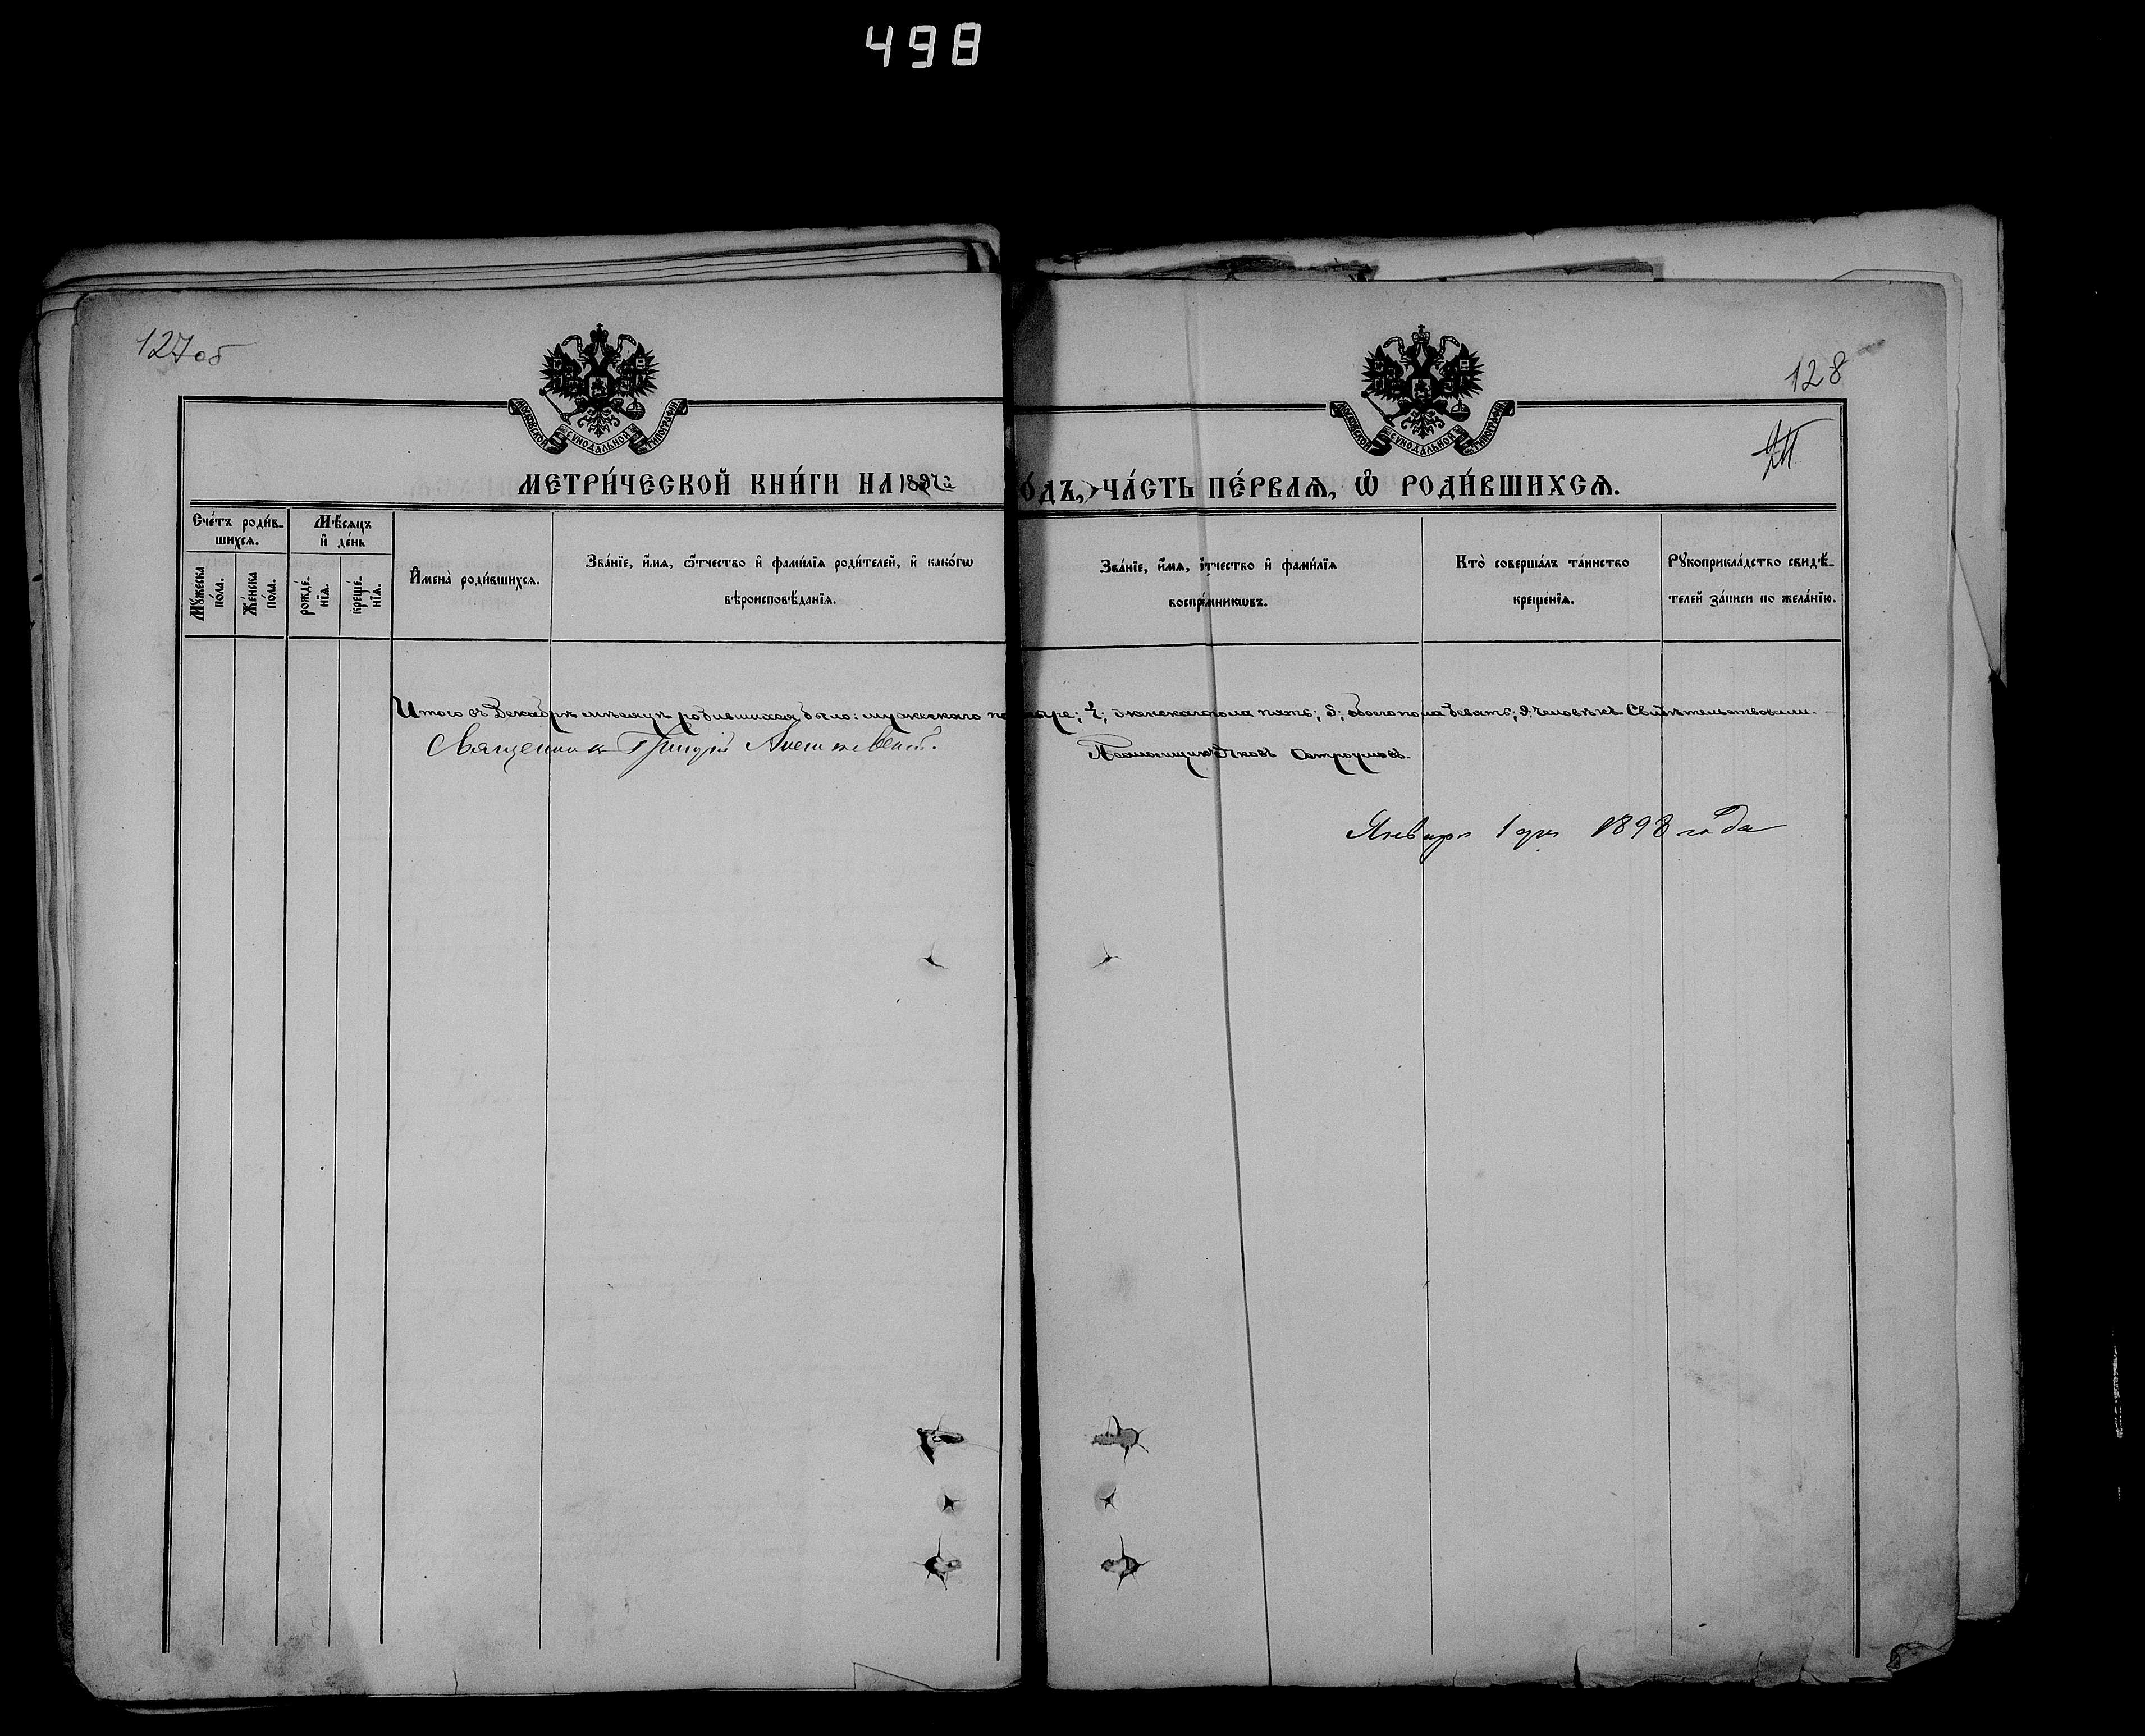 498
127об
128
МОСКОВСКОЙ СУНОДАЛЬНОЙ ТИПОГРАФІИ
МОСКОВСКОЙ СУНОДАЛЬНОЙ ТИПОГРАФІИ
МЕТРИ́ЧЕСКОЙ КНИ́ГИ НА 1897й
О́ДЪ, ЧА́СТЬ ПЕ́РВАѦ, Ѡ РОДИ́ВШИХСѦ.
Сче́тъ роди́в-
шихсѧ.
Мѣ́сѧцъ
и҆ де́нь
Мꙋ́жеска
по́ла.
Же́нска
по́ла.
рожде́-
нїѧ.
креще́-
нїѧ.
И҆мена̀ роди́вшихсѧ.
Зва́нїе, и҆́мѧ, ѻ҆́тчество и҆ фами́лїѧ роди́телей, и҆ како́гѡ
вѣроисповѣ́данїѧ.
Зва́нїе, и҆́мѧ, ѻ҆́тчество и҆ фами́лїѧ
воспрїе́мникѡвъ.
Кто̀ соверша́лъ та́инство
креще́нїѧ.
Рꙋкоприкла́дство свидѣ́-
телей за́писи по жела́нїю.
Итого въ Декабрѣ мѣсяцѣ родившихся было: мужескаго по
тыре; 4; женскаго пола пять; 5; обоего пола девять; 9; человѣкъ Свидѣтельствовали
Священникъ Григорій
Псаломщикъ Яковъ Остроумовъ.
Января 1 дня 1898 года